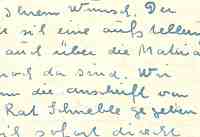 Ihrem Wunsch. Der
sich eine aufstellen
auch über die
noch da sind. Wir
die Anschrift von
Rat Schnebbe gegeben
sich sofort direkt